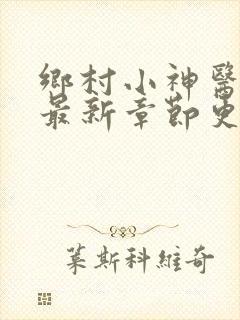 鄉村小神醫
最新章節更
葉斯科維奇